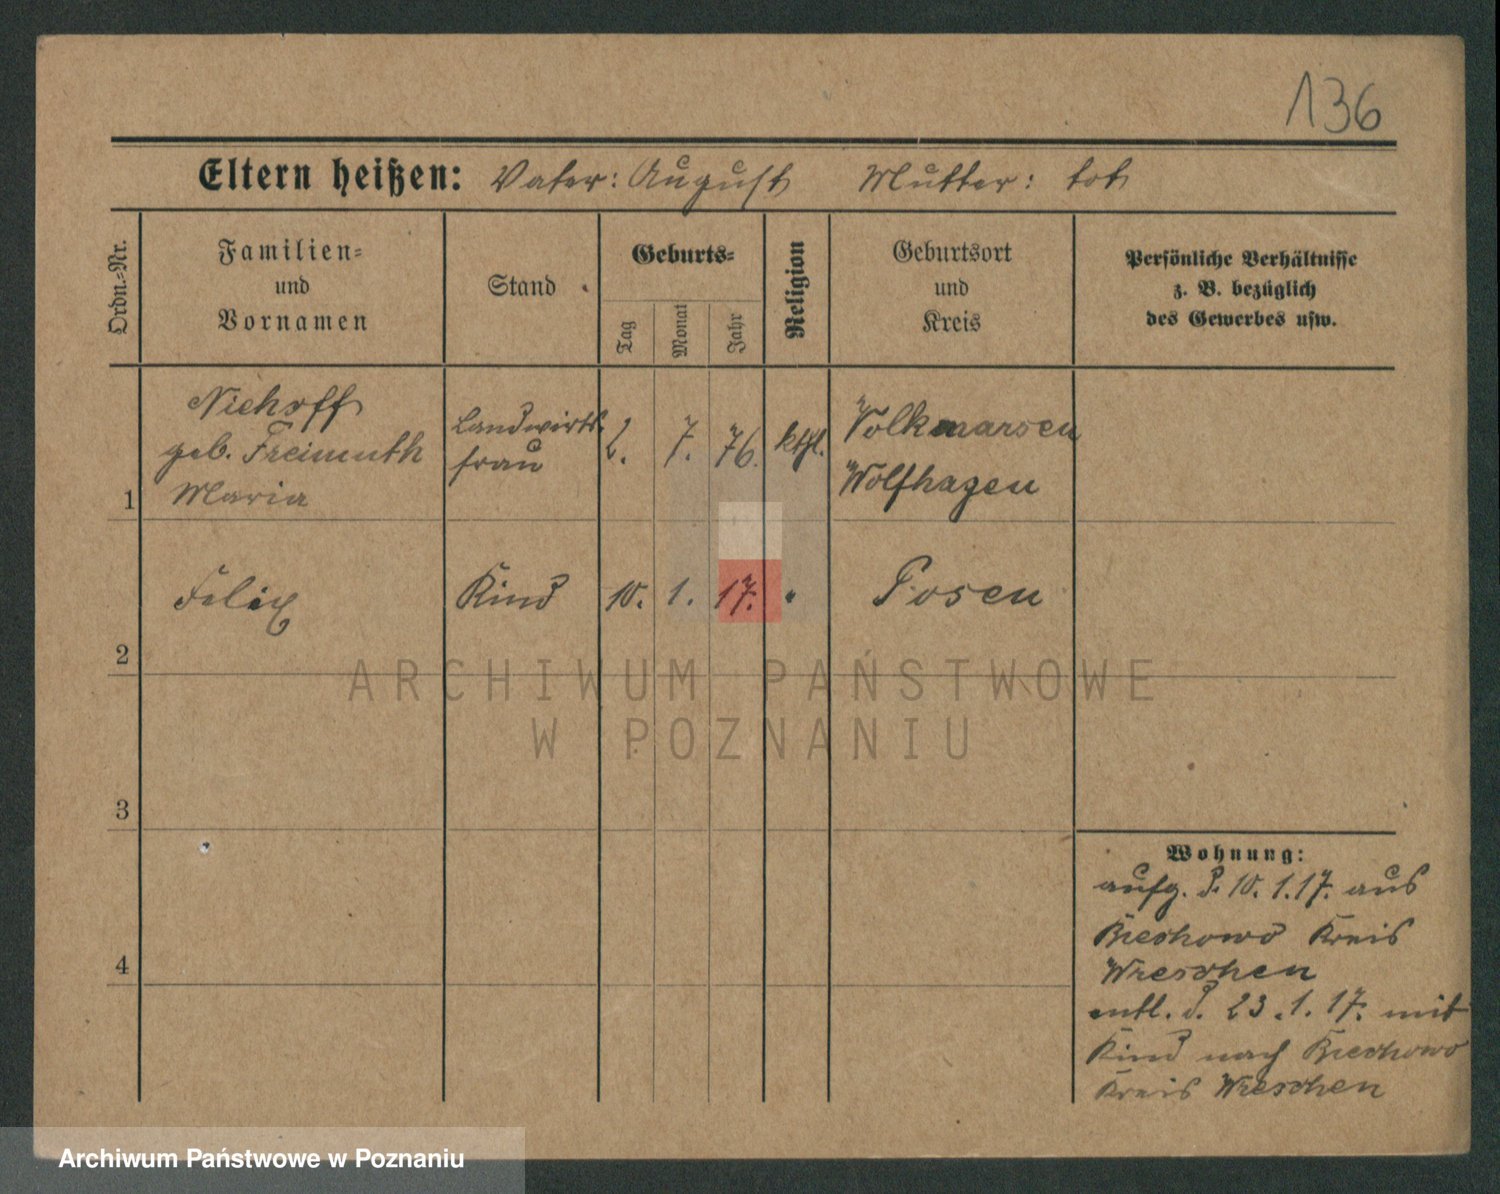 136
Eltern heißen: Vater: August Mutter: tot
Ordn.=Nr.
Familien=
und
Vornamen
Stand
Geburts=
Tag
Monat
Jahr
Religion
Geburtsort
und
Kreis
Persönliche Verhältnisse
z. B. bezüglich
des Gewerbes usw.
1
Niehoff
geb. Freimuth
Maria
Landwirts
frau
2. 7. 76. kthl.
Volkmarsen
Wolfhagen
2
Felix Kind 10. 1. 17. " Posen
3
4
Wohnung:
aufg. d. 10. 1. 17. aus
Kreis
Wreschen
entl. d. 23. 1. 17. mit
Kind nach
Kreis Wreschen
ARCHIWUM PAŃSTWOWE
W POZNANIU
Archiwum Państwowe w Poznaniu